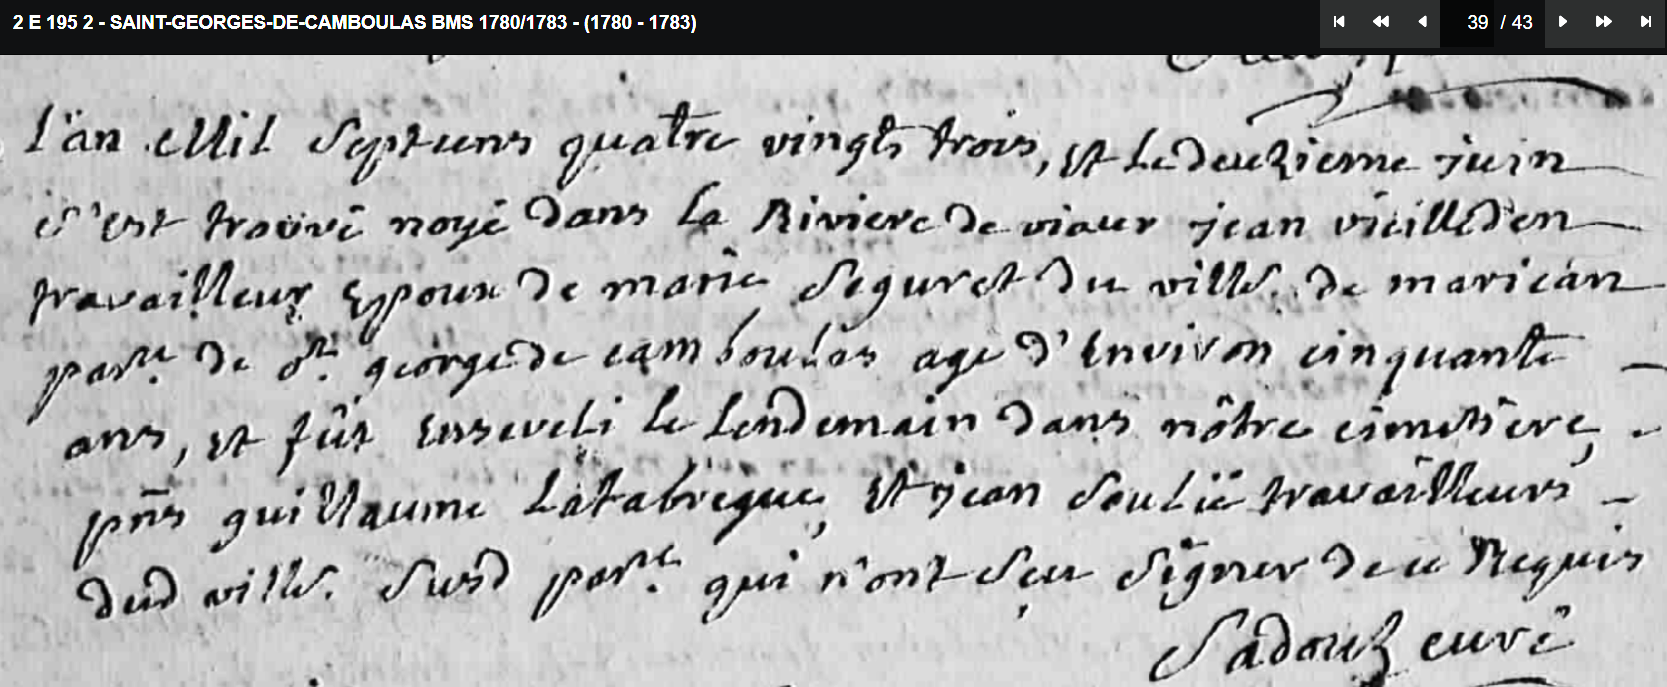 2 E 195 2 - SAINT-GEORGES-DE-CAMBOULAS BMS 1780/1783 - (1780 - 1783)
39 / 43
L'an Mil Septcens quatre vingts trois, et Le deuzieme juin
s'est trouvé noyé dans La Riviere de viaur jean vieilleden
travailleur Epoux de marie Seguret du villẽ. de marican
parse. de st. george de camboulas age d'Environ cinquante
ans, et fût Enseveli le Lendemain dans nôtre cimetiere,
pñs guillaume Latabregue, Et jean Soulié travailleurs
dud ville. Susd parse. qui n'ont Sçu Signer de ce Requis
Sadoul curé